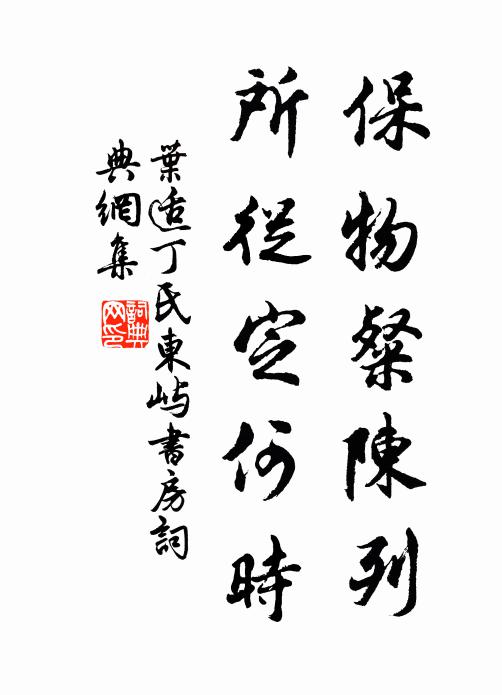 保物粲陳列
所從定何時
葉适丁氏東嶼書房詞
典網集
詞典网印